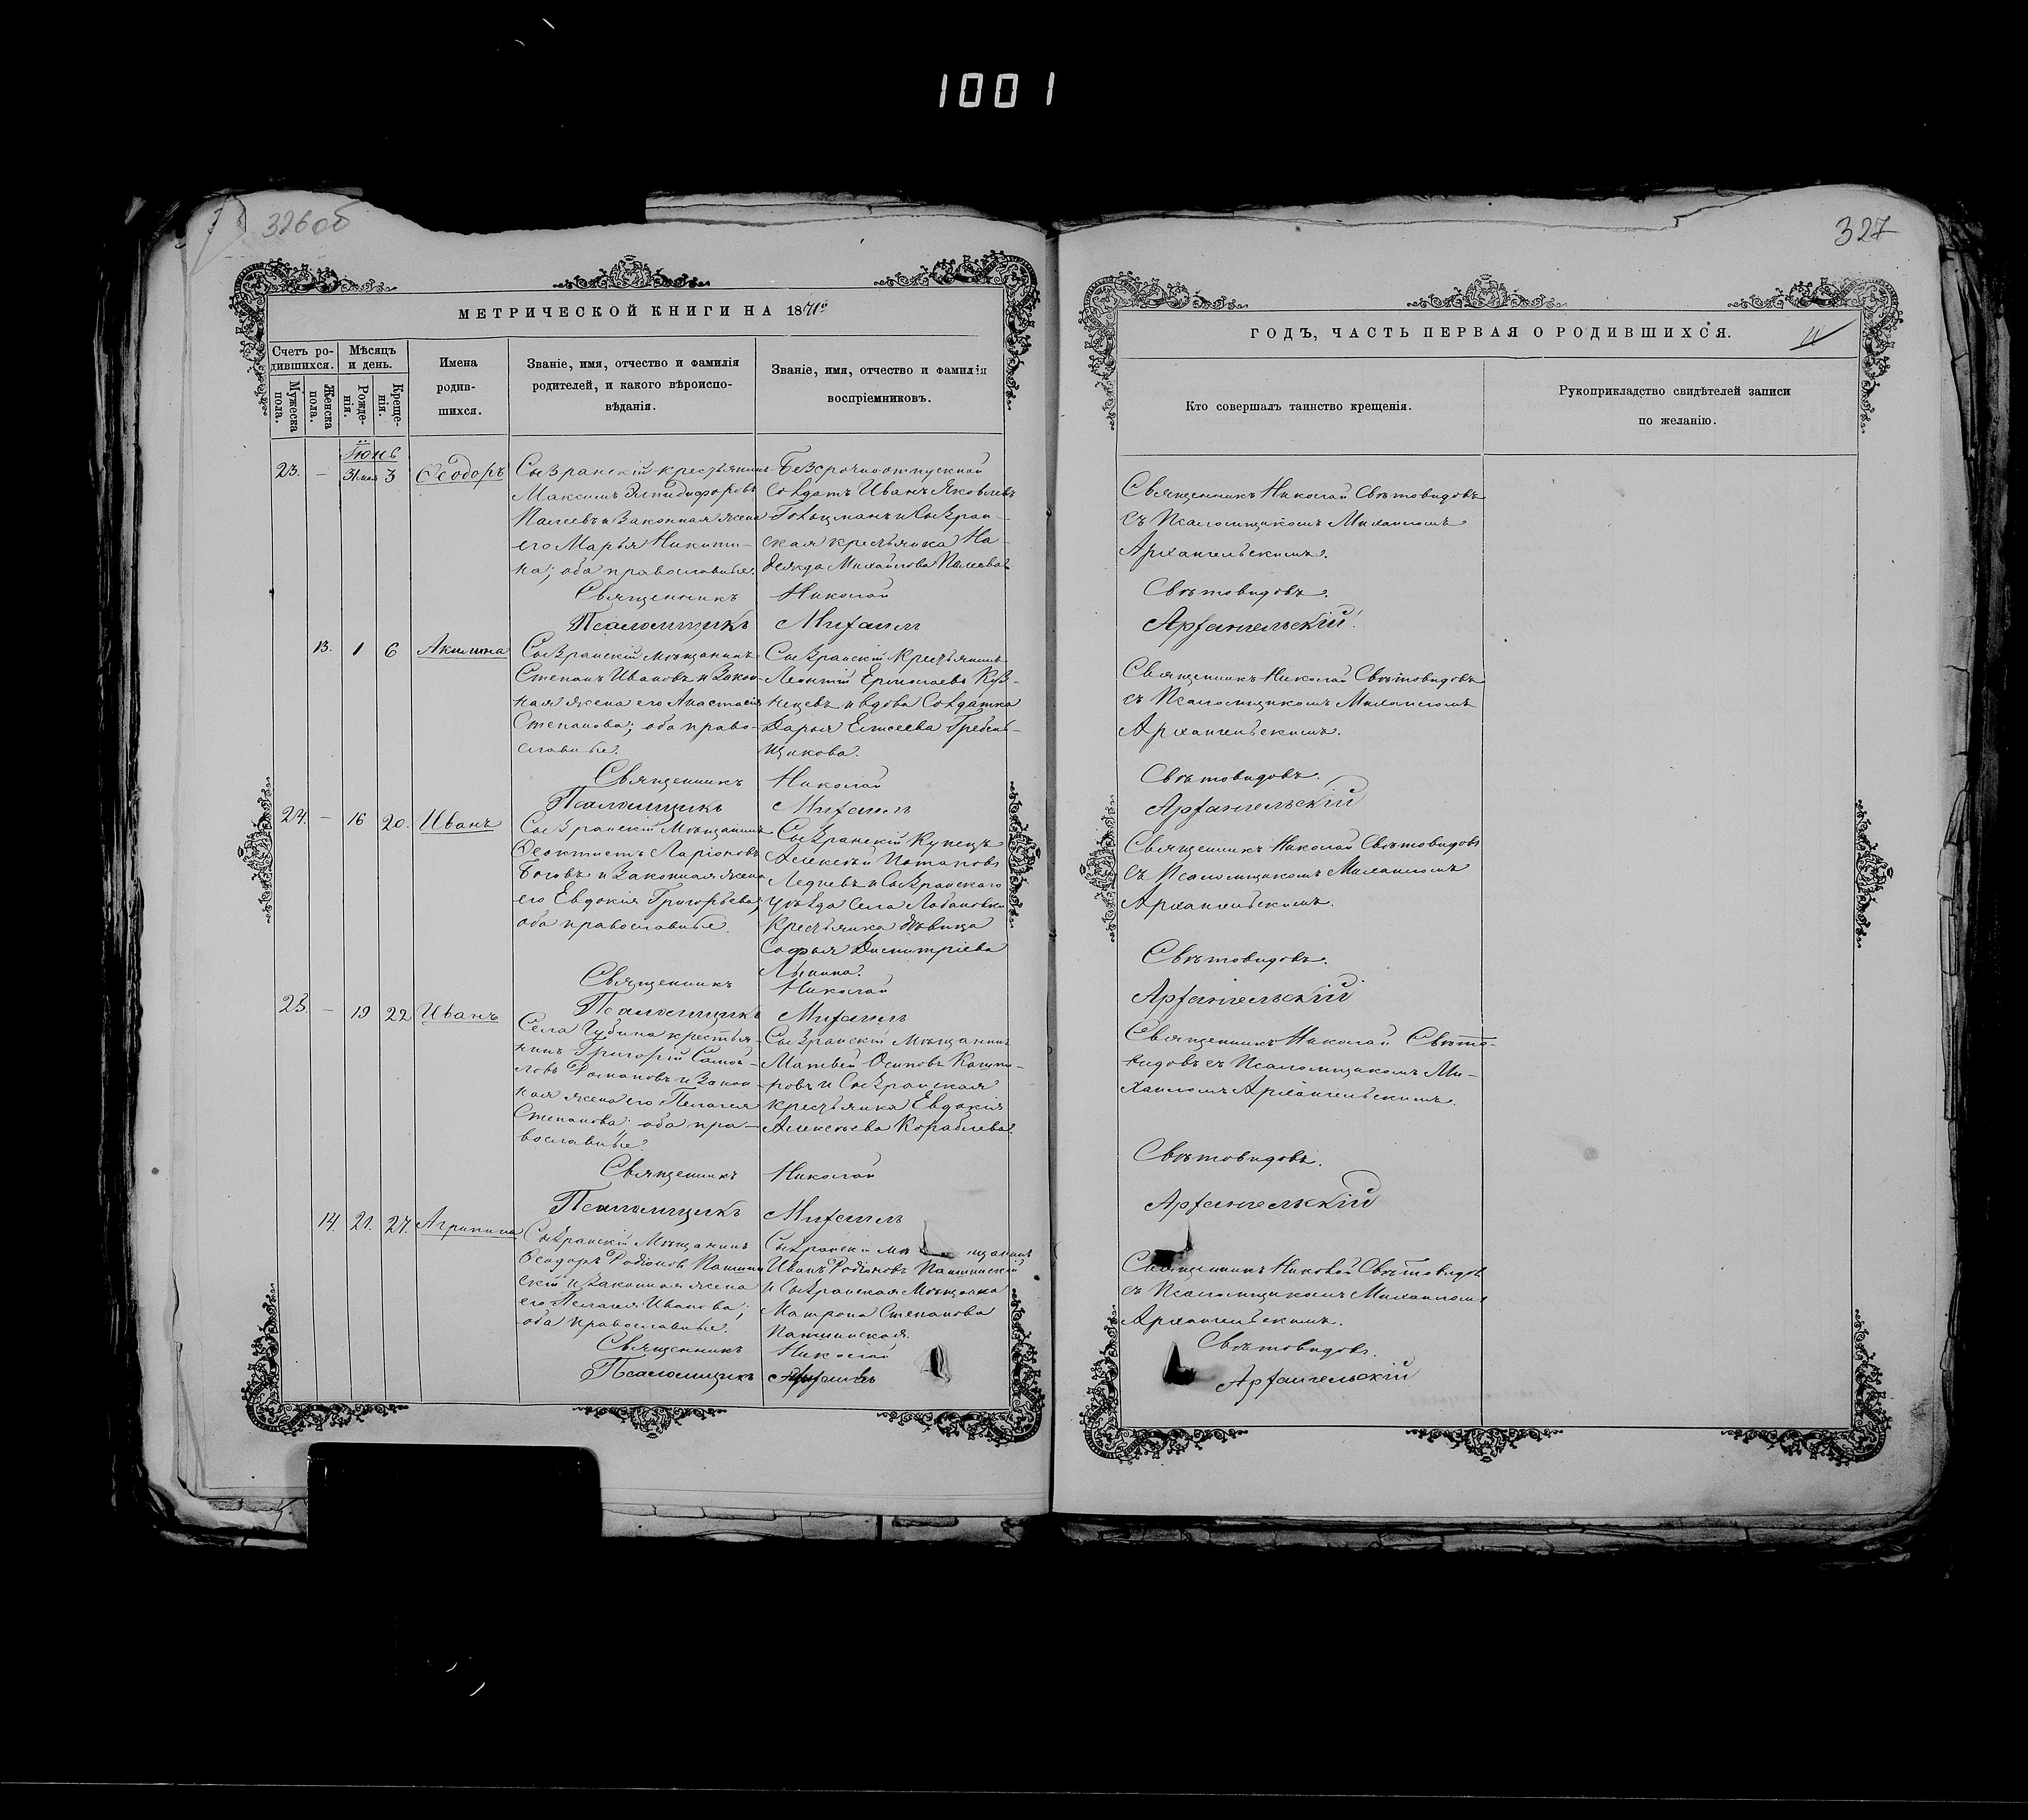 1001
326об
МЕТРИЧЕСКОЙ КНИГИ НА 1871й
Счетъ ро-
дившихся.
Мужеска
пола.
Женска
пола.
Мѣсяцъ
и день.
Рожде-
нія.
Креще-
нія.
Имена
родив-
шихся.
Званіе, имя, отчество и фамилія
родителей, и какого вѣроиспо-
вѣданія.
Званіе, имя, отчество и фамилія
воспріемниковъ.
Іюнь
23. – 31 мая 3 Ѳеодоръ
Сызранскій крестьянинъ
Максимъ Эпидифоровъ
и законная жена
его Марья Никити-
на; оба православные.
Безсрочноотпускной
Солдатъ Иванъ Яковлевъ
Гольцманъ и Сызран-
ская крестьянка На-
дежда Михайлова
Священникъ Николай
Псаломщикъ Михаилъ
13. 1 6 Акилина
Сызранскій мѣщанинъ
Степанъ Ивановъ и закон-
ная жена его Анастасія
Степанова; оба право-
славные.
Сызранскій крестьянинъ
Леонтій Ермолаевъ Куз-
нецовъ и вдова Солдатка
Дарья Елисеева Гребень-
щикова.
Священникъ Николай
Псаломщикъ Михаилъ
24. – 16 20. Иванъ
Сызранскій мѣщанинъ
Ѳеоктистъ Ларіоновъ
Боговъ и законная жена
его Евдокія Григорьева;
оба православные.
Сызранскій Купецъ
Алексѣй Потаповъ
Ледневъ и Сызранскаго
уѣзда села
крестьянка дѣвица
Софья Димитріева
Лькина.
Священникъ Николай
Псаломщикъ Михаилъ
25. – 19 22 Иванъ
Села Губина крестья-
нинъ Григорій Самой-
ловъ Романовъ и закон-
ная жена его Пелагея
Степанова; оба пра-
вославные.
Сызранскій мѣщанинъ
Матвей Осиповъ Кашта-
ровъ и Сызранская
крестьянка Евдокія
Алексѣева Кораблева.
Священникъ Николай
Псаломщикъ Михаилъ
14. 21. 24. Агрипина
Сызранскій мѣщанинъ
Ѳеодоръ Родіоновъ Пашин-
скій и законная жена
его Пелагея Иванова;
оба православные.
Сызранскій мѣщанинъ
Иванъ Родіоновъ Пашинскій
и Сызранская мѣщанка
Матрона Степанова
Пашинская.
Священникъ Николай
Псаломщикъ Михаилъ
327
ГОДЪ, ЧАСТЬ ПЕРВАЯ О РОДИВШИХСЯ.
Кто совершалъ таинство крещенія.
Рукоприкладство свидѣтелей записи
по желанію.
Священникъ Николай Свѣтовидовъ
съ Псаломщикомъ Михаиломъ
Архангельскимъ.
Свѣтовидовъ.
Архангельскій.
Священникъ Николай Свѣтовидовъ
съ Псаломщикомъ Михаиломъ
Архангельскимъ.
Свѣтовидовъ.
Архангельскій
Священникъ Николай Свѣтовидовъ
съ Псаломщикомъ Михаиломъ
Архангельскимъ.
Свѣтовидовъ.
Архангельскій
Священникъ Николай Свѣто-
видовъ съ Псаломщикомъ Ми-
хаиломъ Архангельскимъ.
Свѣтовидовъ.
Архангельскій
Священникъ Николай Свѣтовидовъ
съ Псаломщикомъ Михаиломъ
Архангельскимъ.
Свѣтовидовъ.
Архангельскій